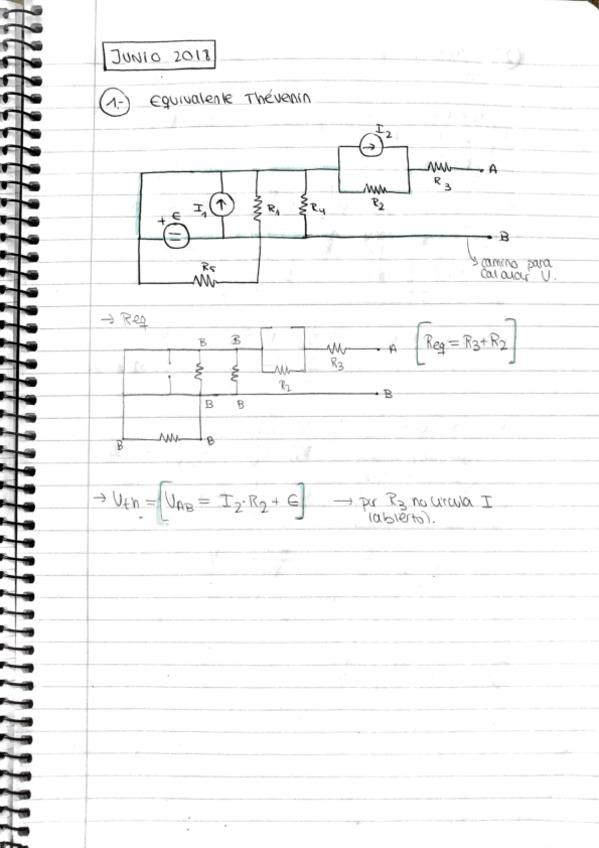 JUNIO 2018
1- Equivalente Thévenin
I2
A
R3
R2
I1
R1
R4
+ E
B
R5
camino para
calcular U.
→ Req
B B
A
[Req = R3 + R2]
R3
R2
B B
B
B B
→ Uth = [UAB = I2·R2 + E] → por R3 no circula I
(abierto).